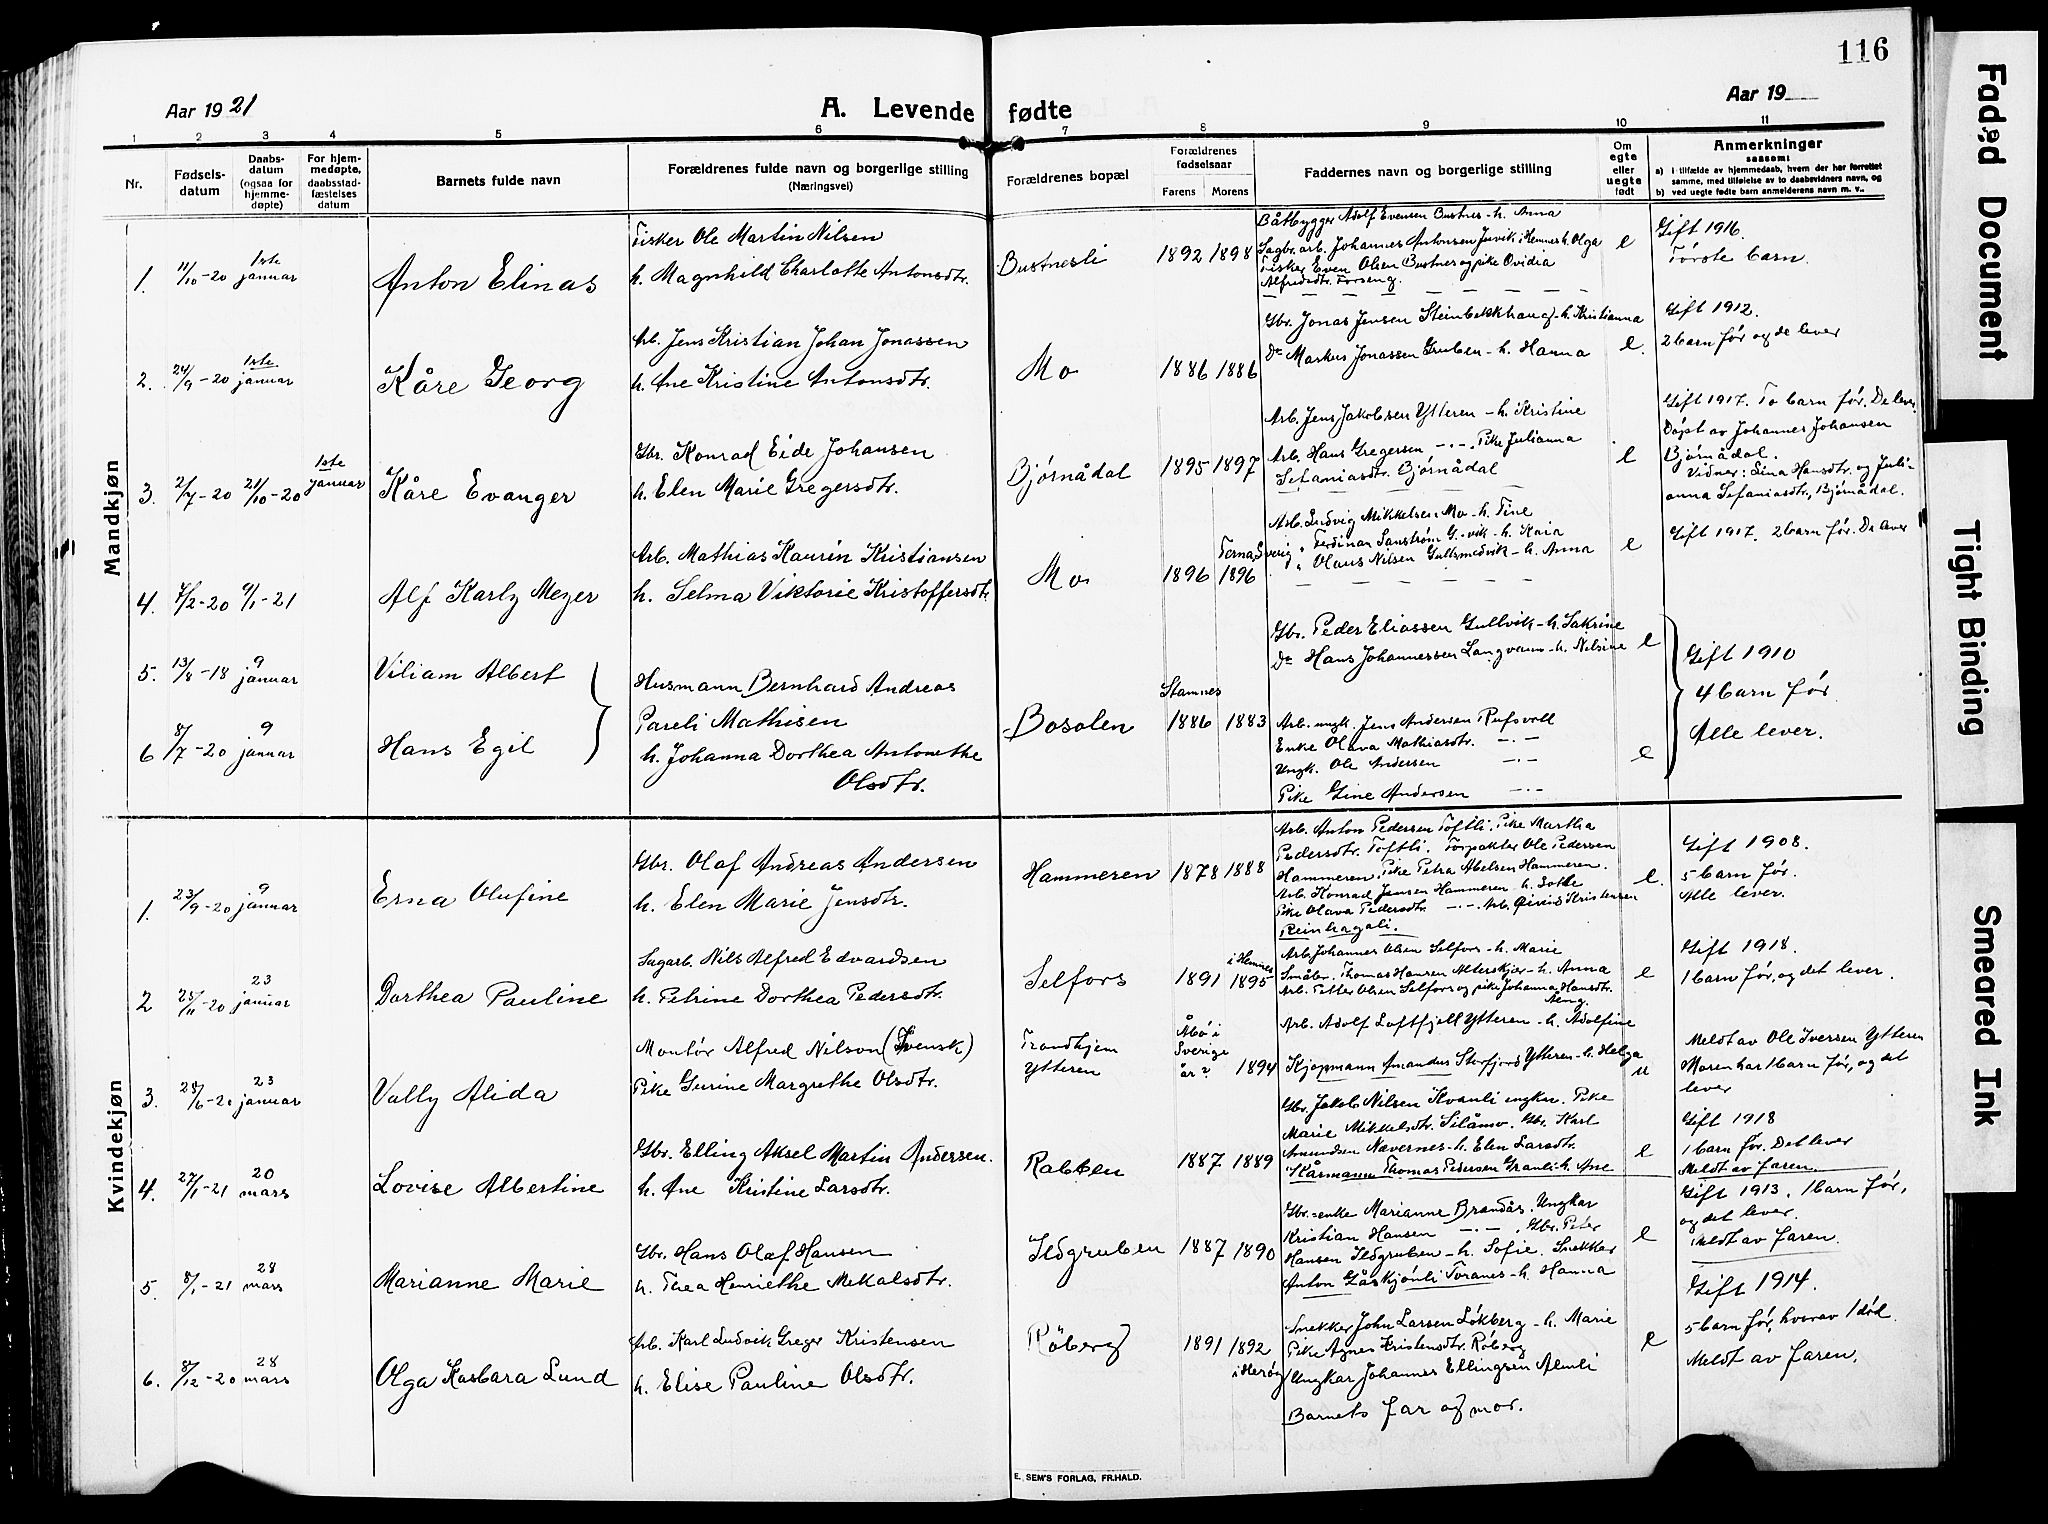 116
Aar 1921
A. Levende fødte
Aar 19
1 2 3 4 5 6 7 8 9 10 11
Nr.
Fødsels-
datum
Daabs-
datum
(ogsaa for
hjemme-
døpte)
For hjem-
medøpte,
daabsstad-
fæstelses
datum
Barnets fulde navn
Forældrenes fulde navn og borgerlige stilling
(Næringsvei)
Forældrenes bopæl
Forældrenes
fødselsaar
Farens Morens
Faddernes navn og borgerlige stilling
Om
egte
eller
uegte
født
Anmerkninger
saasom:
a) i tilfælde av hjemmedaab, hvem der har forrettet
samme, med tilføielse av to daabsvidners navn, og
b) ved uegte fødte barn anmelderens navn m. v..
Mandkjøn
1. 11/10-20 1ste januar
Anton Elinas
Fisker Ole Martin Nilsen
h. Magnhild Charlotte Antonsdtr.
Bustnesli
1892 1898
Båtbygger Adolf Evensen Bustnes - h. Anna
Sagbr.arb. Johannes Antonsen Juvik i Hemnes h. Olga
Fisker Even Olsen Bustnes og pike Ovidia
Alfredsdtr. Forseng.
e
Gift 1916.
Første barn.
2. 24/9-20 1ste januar
Kåre Georg
Arb. Jens Kristian Johan Jonassen
h. Ane Kristine Antonsdtr.
Mo
1886 1886
Gbr. Jonas Jensen Steinbekkhaug - h. Kristianna
Do Markus Jonassen Gruben - h. Hanna
e.
Gift 1912.
2 barn før og de lever
3. 2/7-20 21/10-20 1ste januar
Kåre Evanger
Gbr. Konrad Eide Johansen
h. Elen Marie Gregersdtr.
Bjørnådal
1895 1897
Arb. Jens Jakobsen Ytteren - h. Kristine
Arb. Hans Gregersen -"- Pike Julianna
Sefaniasdtr. Bjørnådal
e
Gift 1917. To barn før. De lever.
Døpt av Johannes Johansen
Bjørnådal.
Vidner: Lina Hansdtr. og Juli-
anna Sefaniasdtr., Bjørnådal.
4. 7/12-20 9/1-21
Alf Karly Meyer
Arb. Mathias Kaurin Kristiansen
h. Selma Viktorie Kristoffersdtr.
Mo
1896 Terna, Sverig 1896
Arb. Ludvig Mikkelsen Mo - h. Tine
" Ferdinan Sanstrøm G.-vik - h. Kaia
d" Olaus Nilsen Gullsmedvik - h. Anna
e
Gift 1917. 2 barn før. De lever
5. 13/8-18 9 januar
Viliam Albert
Husmann Bernhard Andreas
Pareli Mathisen
h. Johanna Dorthea Antonethe
Olsdtr.
Bosolen
Stamnes
1886 1883
Gbr. Peder Eliassen Gullvik - h. Sakrine
Do Hans Johannessen Langvann - h. Nilsine
e
Gift 1910
4 barn før
Alle lever.
6 8/7-20 9 januar
Hans Egil
Arb. ungk. Jens Andersen Rufsvoll
Enke Olava Mathiasdtr. -"-
Ungk. Ole Andersen -"-
Pike Gine Andersen -"-
e
Kvindekjøn
1. 23/9-20 9 januar
Erna Olufine
Gbr. Olaf Andreas Andersen
h. Elen Marie Jensdtr.
Hammeren
1878 1888
Arb. Anton Pedersen Toftli. Pike Martha
Pedersdtr. Toftli. Forpakter Ole Pedersen
Hammeren. Pike Petra Abelsen Hammeren.
Arb. Konrad Jensen Hammeren - h. Lotte
Pike Olava Pedersdtr. -"-. Arb. Øivind Kristensen
Reinhagali.
e.
Gift 1908.
5 barn før.
Alle lever.
2 25/11-20 23 januar
Dorthea Pauline
Sagarb. Nils Alfred Edvardsen
h. Petrine Dorthea Pedersdtr.
Selfors
1891 i Hemnes 1895
Arb. Johannes Olsen Selfors - h. Marie
Småbr. Thomas Hansen Alterskjær - h. Anna
Arb. Petter Olsen Selfors og pike Johanna Hansdtr.
Aeng.
e
Gift 1918.
1 barn før, og det lever.
3. 28/6-20 23 januar
Vally Alida
Montør Alfred Nilson (Svensk)
Pike Gurine Margrethe Olsdtr.
Trondhjem
Ytteren
Åbo i
Sverige
år? 1894
Arb. Adolf Loftfjell Ytteren - h. Adolfine
Kjøpmann Amandus Storfjord Ytteren - h. Helga
u
Meldt av Ole Iversen Ytteren
Moren har 1 barn før, og det
lever
4. 27/1-21 20 mars
Lovise Albertine
Gbr. Elling Aksel Martin Andersen.
h. Ane Kristine Larsdtr.
Rabben
1887 1889
Gbr. Jakob Nilsen Kvanli ungkar. Pike
Marie Mikkelsdtr. Silåmo. Gbr. Karl
Amundsen Nævernes - h. Elen Larsdtr.
Kårmann Thomas Pedersen Granli h. Ane
e
Gift 1918
1 barn før. Det lever
Meldt av faren.
5. 8/1-21 28 mars
Marianne Marie
Gbr. Hans Olaf Hansen
h. Thea Henriethe Mekalsdtr.
Ildgruben
1887 1890
Gbr.-enke Marianne Brandås. Ungkar
Kristian Hansen -"-. Gbr. Peter
Hansen Ildgruben - h. Sofie. Snekker
Anton Gåskjønli Toranes - h. Hanna
e
Gift 1913. 1 barn før,
og det lever.
Meldt av faren.
6. 8/12-20 28 mars
Olga Kasbara Lund
Arb. Karl Ludvik Greger Kristensen
h. Elise Pauline Olsdtr.
Røberg
1891 1892
i Herøy
Snekker John Larsen Løkberg - h. Marie
Pike Agnes Kristensdtr. Røberg
Ungkar Johannes Ellingsen Almli
Barnets far og mor.
e
Gift 1914.
5 barn før, hvorav 1 død.
Meldt av faren.
E. SEM'S FORLAG, FR.HALD.
Faded Document
Tight Binding
Smeared Ink